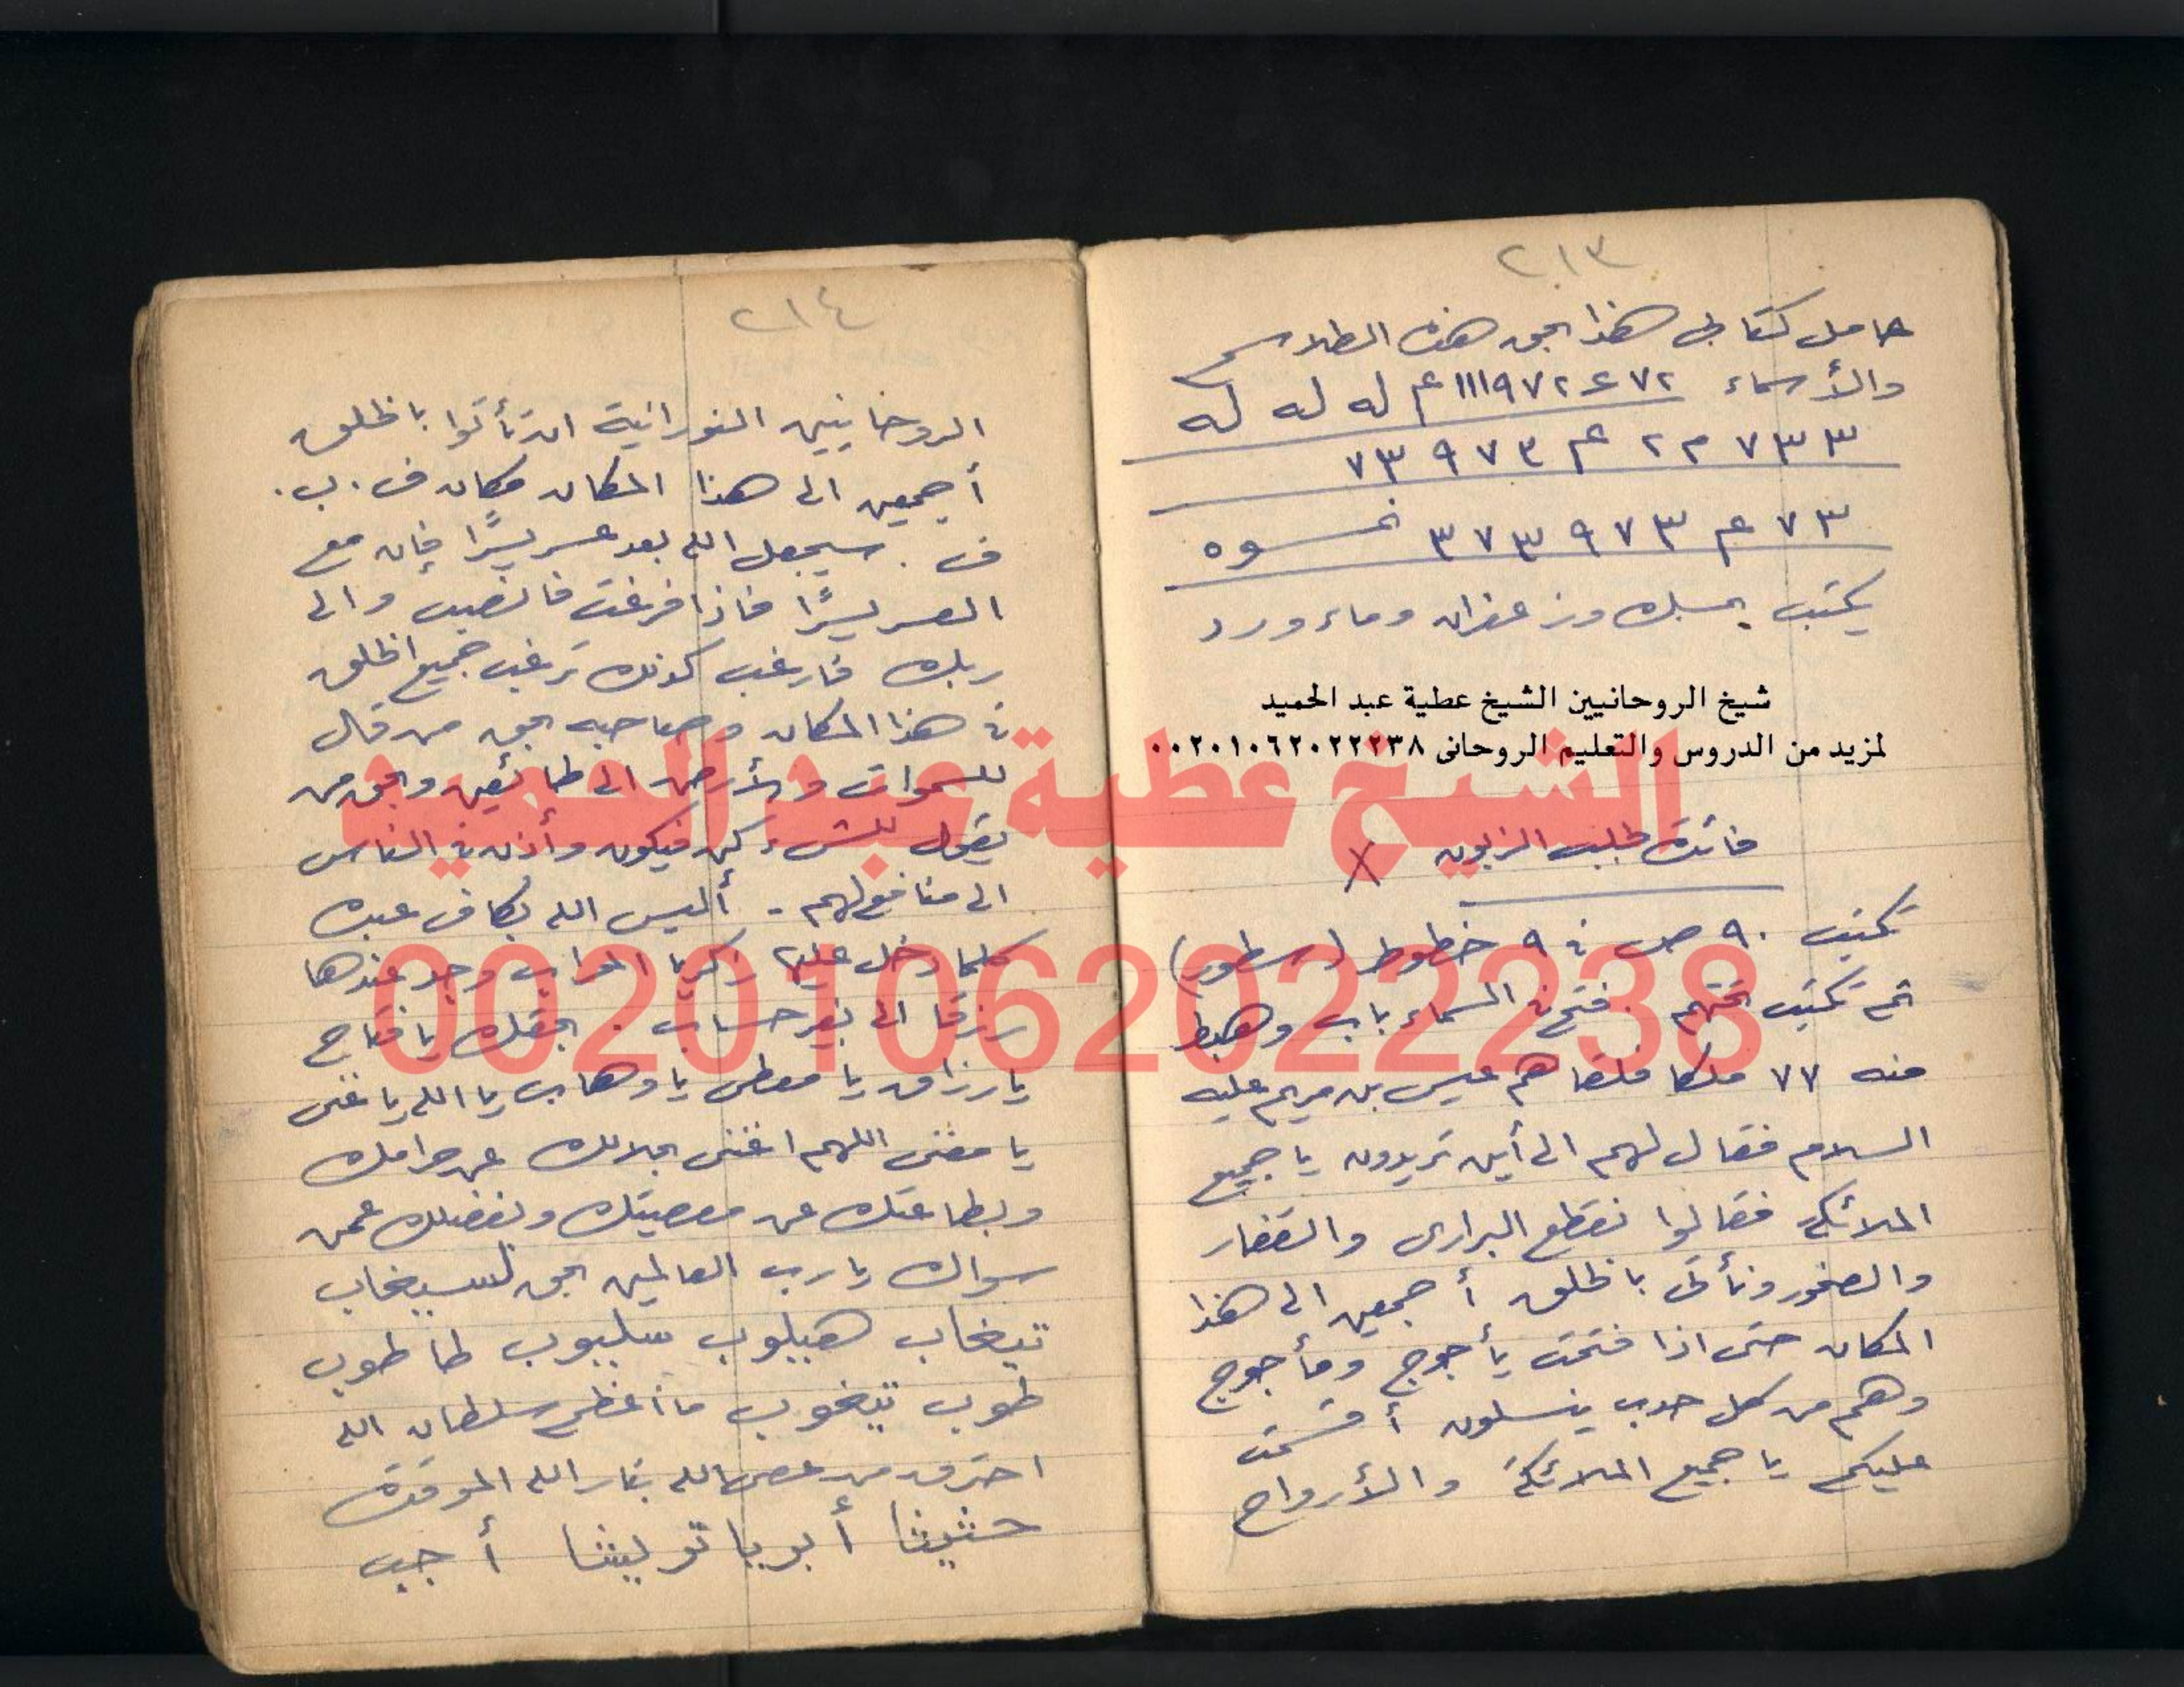 ٢١٣
حامل كتابى هذا بحق هذه الطلاسم
والأسماء ٧٢ ع ١١١٩٧٢ عم له له له
٧٣٣ م ٢ عم ٩٧٣ ٧٣
٧٣ عم ٩٧٣ ٣٧٣
يكتب بمسك وزعفران وماء ورد
شيخ الروحانيين الشيخ عطية عبد الحميد
لمزيد من الدروس والتعليم الروحانى ٠٠٢٠١٠٦٢٠٢٢٢٣٨
فائدة لجلب الزبون X
تكتب ٩٠ ص فى ٩ خطوط (سطور)
ثم تكتب تحتهم . فتح فى السماء باب وهبط
منه ٧٧ ملكا فلقاهم عيسى بن مريم عليه
السلام فقال لهم الى أين تريدون يا جميع
الملائكة فقالوا نقطع البرارى والقفار
والصخور ونأتى بالخلق أجمعين الى هذا
المكان حتى اذا فتحت يأجوج ومأجوج
وهم من كل حدب ينسلون أقسمت
عليكم يا جميع الملائكة والأرواح
٢١٤
الروحانيين النورانية ان تأتوا بالخلق
أجمعين الى هذا المكان مكان ف . ب .
ف . سيجعل الله بعد عسر يسرًا فإن مع
العسر يسرًا فاذا فرغت فانصب والى
ربك فارغب كذلك ترغب جميع الخلق
فى هذا المكان وصاحبه بحق من قال
للسموات والأرض الى طائعين وبحق من
يقول للشىء كن فيكون وأذن فى الناس
الى منافع لهم - أليس الله بكاف عبده
كلما دخل عليها زكريا المحراب وجد عندها
رزقا الى بغير حساب . بحقك يا فتاح
يا رزاق يا معطى يا وهاب يا الله يا غنى
يا مغنى اللهم اغننى بحلالك عن حرامك
وبطاعتك عن معصيتك وبفضلك عمن
سواك يا رب العالمين بحق لسيخاب
تيخاب هيلوب سليوب طاطوب
طوب تيخوب ما أعظم سلطان الله
احترق من عصى الله بنار الله الموقدة
حثيثا أبويا توليثا أجب
الشيخ عطية عبد الحميد
00201062022238